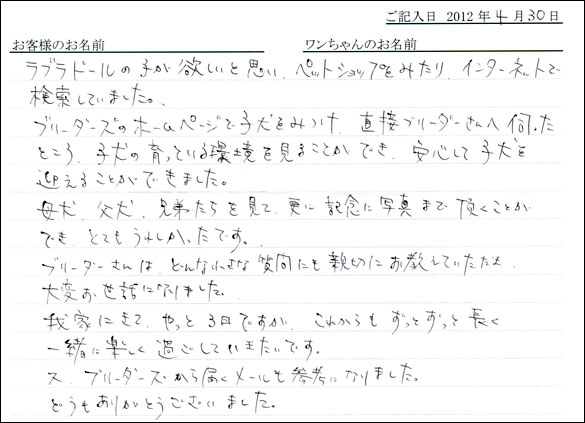 ご記入日 2012年4月30日
お客様のお名前 ワンちゃんのお名前
ラブラドールの子が欲しいと思い、ペットショップをみたり、インターネットで
検索していました。
ブリーダーズのホームページで子犬をみつけ、直接ブリーダーさんへ伺った
ところ、子犬の育っている環境を見ることができ、安心して子犬を
迎えることができました。
母犬、父犬、兄弟たちを見て、更に記念に写真まで頂くことが
でき、とてもうれしかったです。
ブリーダーさんは、どんな小さな質問にも親切にお教えしていただき、
大変お世話になりました。
我家に来て、やっと3日ですが、これからもずっとずっと長く
一緒に楽しく過ごしていきたいです。
又、ブリーダーズから届くメールも参考になりました。
どうもありがとうございました。